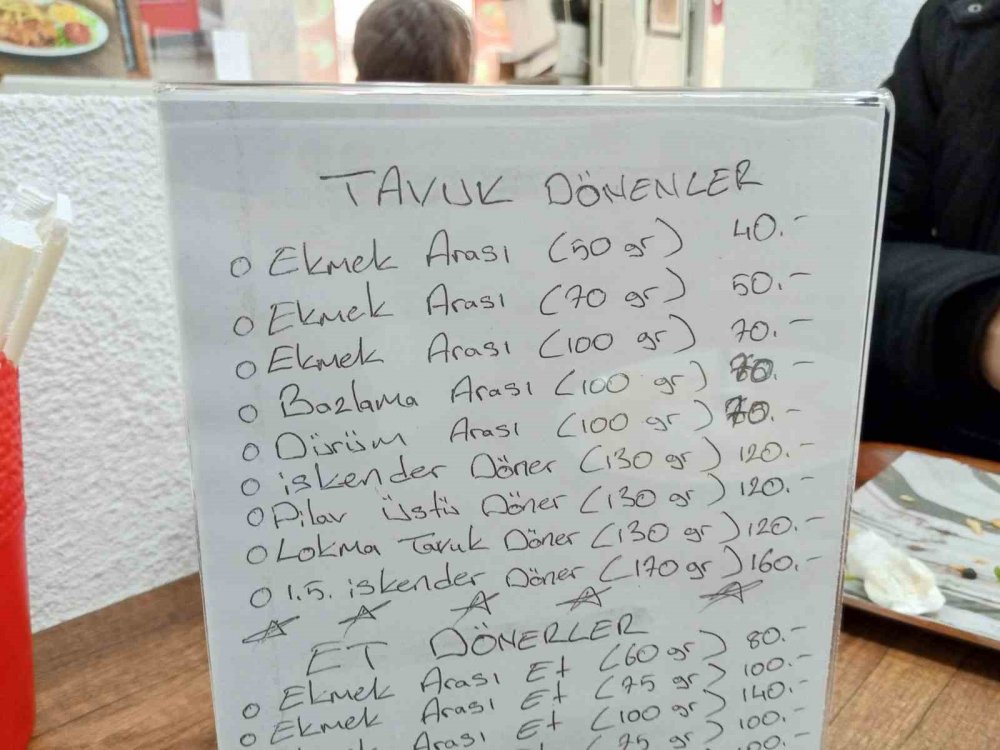 TAVUK DÖNENLER
o Ekmek Arası (50 gr) 40.-
o Ekmek Arası (70 gr) 50.-
o Ekmek Arası (100 gr) 70.-
o Bazlama Arası (100 gr)
o Dürüm Arası (100 gr)
o iskender Döner (130 gr) 120.-
o Pilav üstü Döner (130 gr) 120.-
o Lokma Tavuk Döner (130 gr) 120.-
o 1.5. iskender Döner (170 gr) 160.-
ET DÖNERLER
o Ekmek Arası Et (60 gr) 80.-
o Ekmek Arası Et (75 gr) 100.-
Arası Et (100 gr) 140.-
(75 gr) 100.-